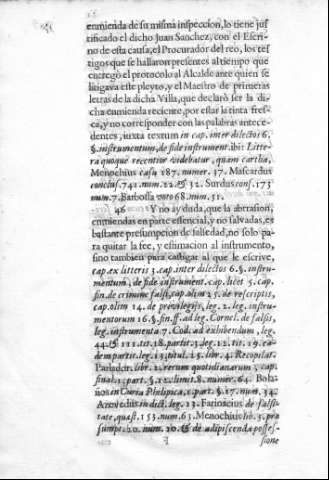 enmienda de su misma inspeccion, lo tiene jus
tificado el dicho Juan Sanchez, con el Escri-
no de esta causa, el Procurador del reo, los tes
tigos que se hallaron presentes al tiempo que
entregò el protocolo al Alcalde ante quien se
litigava este pleyto, y el Maestro de primeras
letras de la dicha Villa, que declarò ser la di-
cha enmienda reciente, por estar la tinta fres-
ca, y no corresponder con las palabras antece-
dentes, iuxta textum in cap. inter dilectos 6.
§. instrumentum, de fide instrument. ibi: Litte-
ra quoque recentior videbatur, quàm cartha,
Menochius casu 187. numer. 37. Mascardus
conclus. 742. num. 22. & 32. Surdus cons. 173
num. 7. Barbossa voto 68. num. 51.
46 Y no ay duda, que la abrasion,
enmiendas en parte essencial, y no salvadas, es
bastante presumpcion de falsedad, no solo pa-
ra quitar la fee, y estimacion al instrumento,
sino tambien para castigar al que le escrive,
cap. ex litteris 3. cap. inter dilectos 6. §. instru-
mentum, de fide instrument. cap. licet 5. cap.
fin. de crimine falsi, cap. olim 25. de rescriptis,
cap. olim 14. de privilegijs, leg. 2. leg. instru-
mentorum 16. §. fin. ff. ad leg. Cornel. de falsis,
leg. instrumenta 7. Cod. ad exhibendum, leg.
44. & 111. tit. 18. partit. 3. leg. 12. tit. 19. ea-
dem partit. leg. 13. titul. 25. lib. 4. Recopilat.
Parlador. lib. 2. rerum quotidianarum, cap.
final. 1. part. §. 12. limit. 8. numer. 64. Bola-
ños in Curia Philipica, 1. part. §. 17. num. 34.
Azevedus in dict. leg. 13. Farinacius de falsi-
tate, quæst. 153. num. 63. Menochius lib. 5. præ
sumpt. 20. num. 20. & de adipiscenda posses-
sione